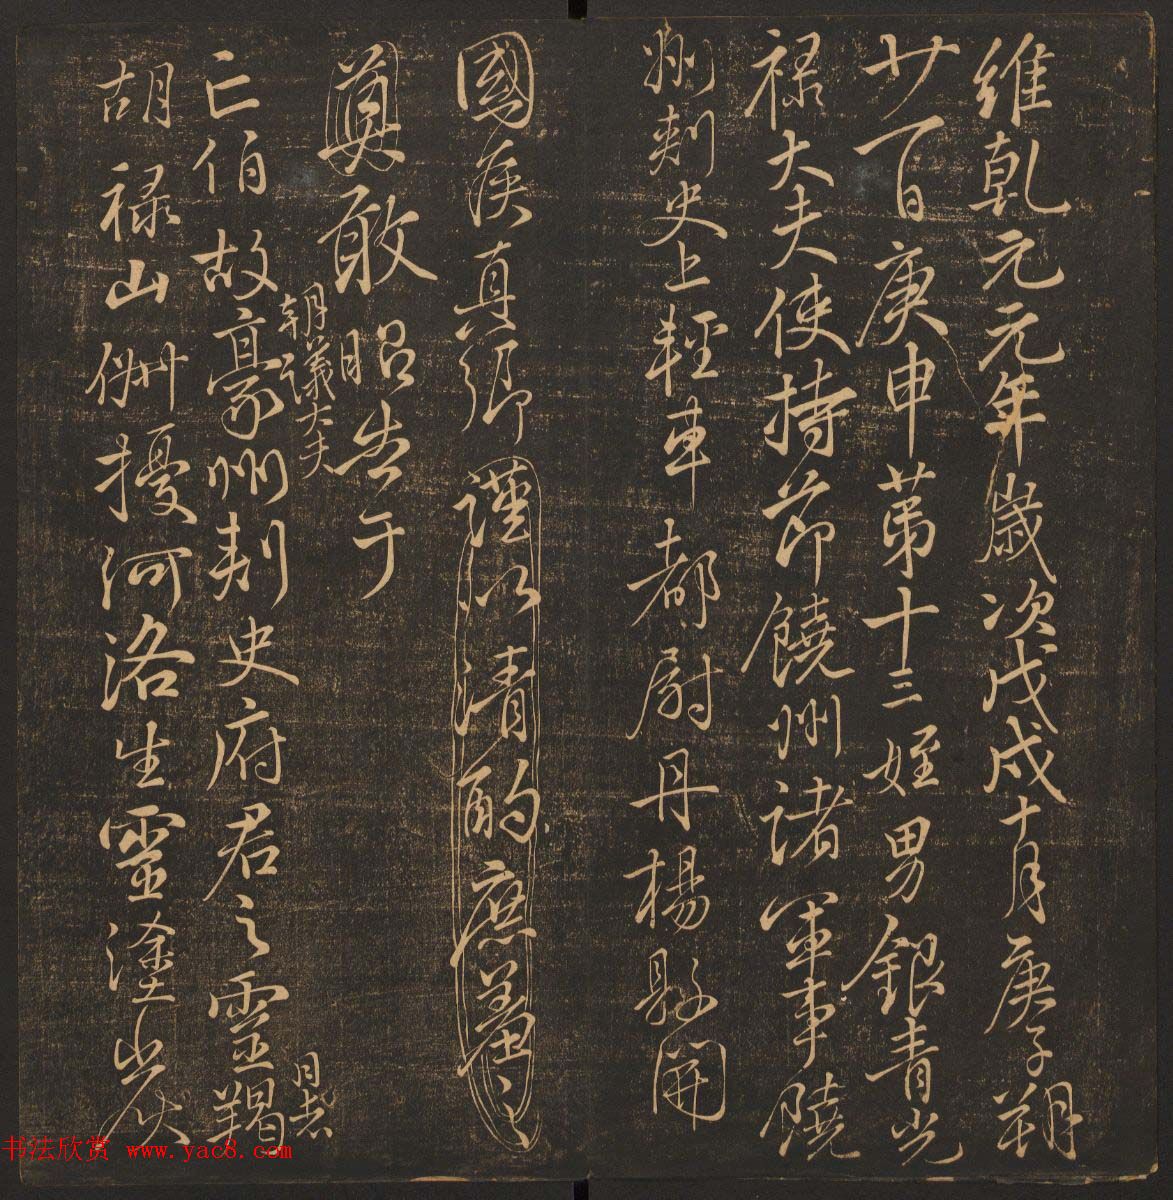 維乾元元年歲次戊戌十月庚子朔
廿一日庚申第十三姪男銀青光
禄大夫使持節饒州諸軍事饒
州刺史上輕車都尉丹楊縣開
國侯真卿謹以清酌庶羞之
奠敢昭告于
朝議大夫
亡伯故豪州刺史府君之靈羯
日者
胡禄山俶擾河洛生靈塗炭
书法欣赏 www.yac8.com